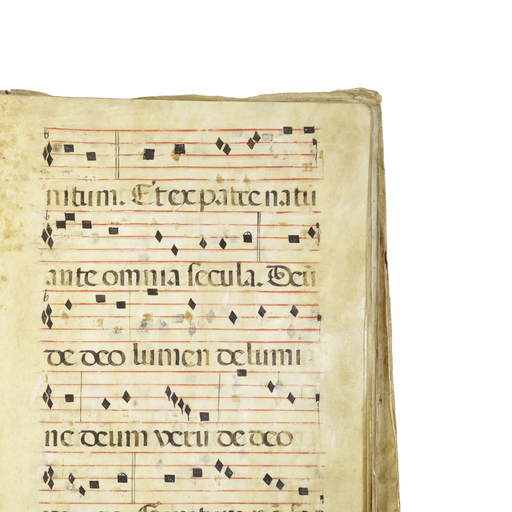 nitum. Et ex patre natū
ante omnia secula. Deū
de deo lumen de lumi
ne deum verū de deo